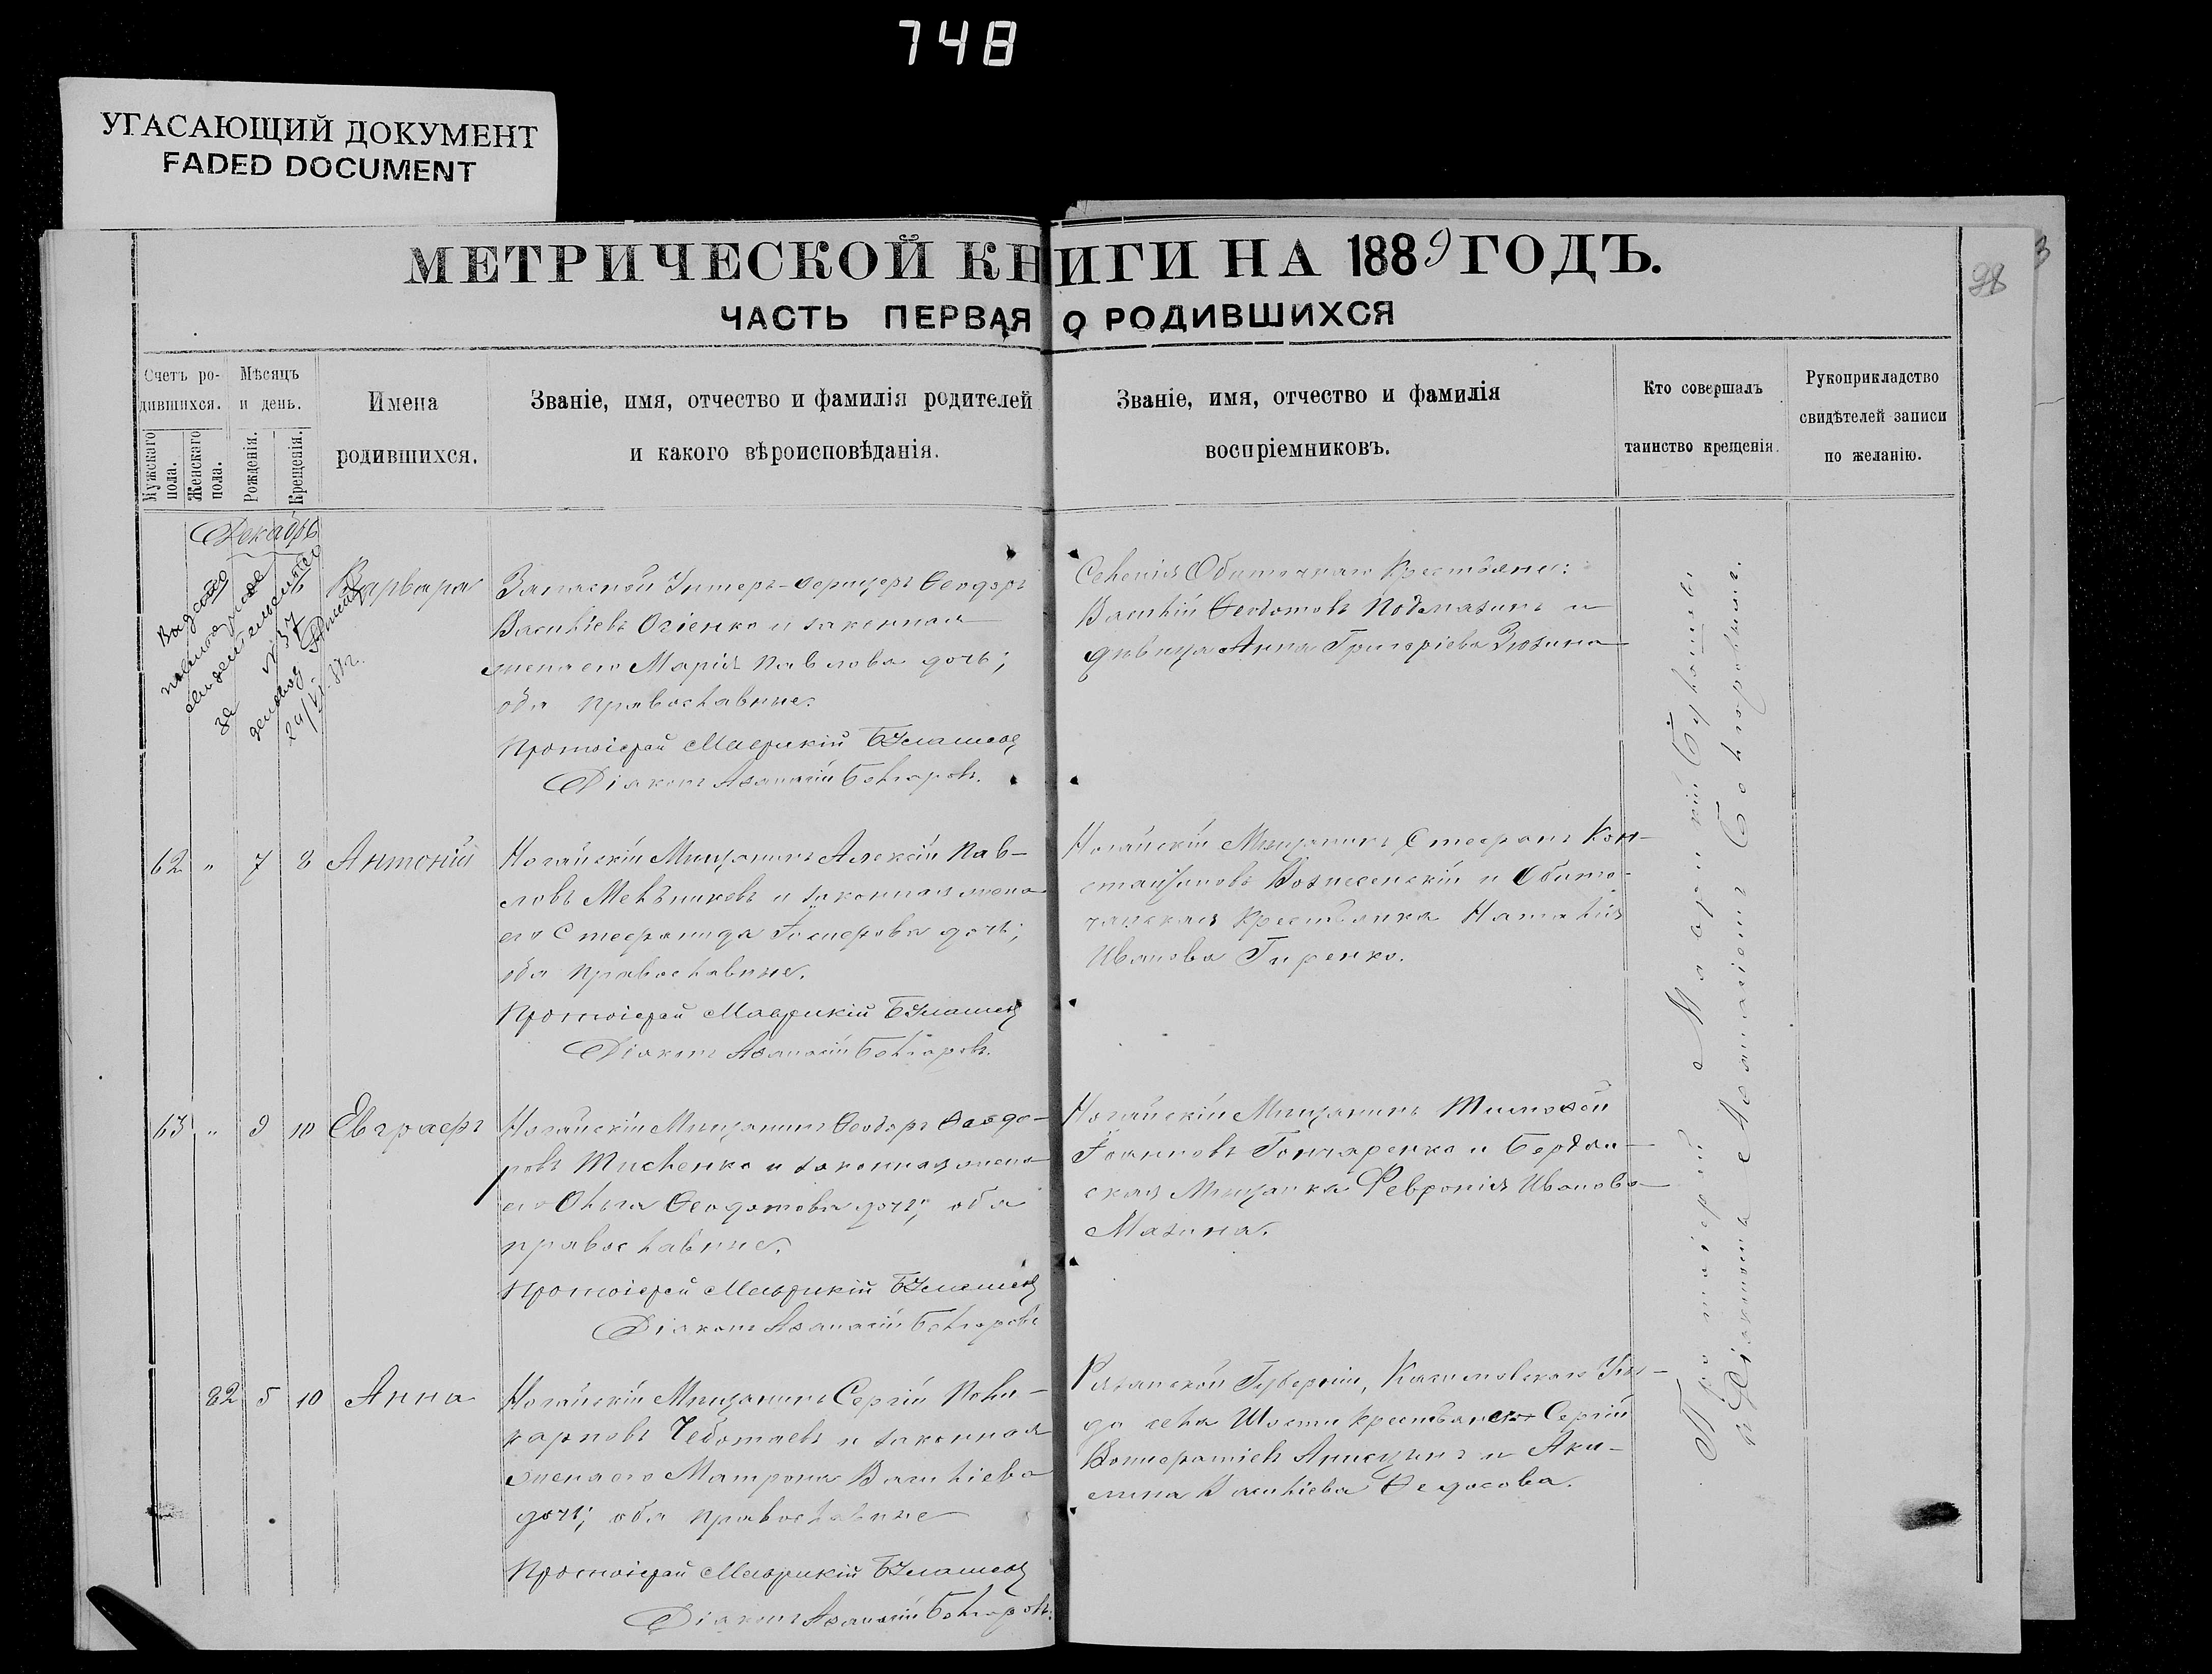 748
УГАСАЮЩИЙ ДОКУМЕНТ
FADED DOCUMENT
МЕТРИЧЕСКОЙ КНИГИ НА 1889 ГОДЪ.
ЧАСТЬ ПЕРВАЯ О РОДИВШИХСЯ
98
3
Счетъ ро-
дившихся.
Мужскаго пола.
Женскаго пола.
Мѣсяцъ
и день.
Рожденія.
Крещенія.
Имена
родившихся.
Званіе, имя, отчество и фамилія родителей
и какого вѣроисповѣданія.
Званіе, имя, отчество и фамилія
воспріемниковъ.
Кто совершалъ
таинство крещенія.
Рукоприкладство
свидѣтелей записи
по желанію.
Декабрь
за № 37
Варвара
Запасной Унтеръ-офицеръ Ѳеодоръ
Василіевъ Огіенко и законная
жена его Марія Павлова дочь;
оба православные.
Протоіерей Маврикій
Діаконъ Аѳанасій Болгаровъ.
Селенія Обиточнаго Крестьяне:
Василій Ѳеодотовъ и
дѣвица Анна Григоріева Зюзина
62 " 7 8 Антоній
Ногайскій Мѣщанинъ Алексій Пав-
ловъ Мельниковъ и законная жена
его Стефанида дочь;
оба православные.
Протоіерей Маврикій
Діаконъ Аѳанасій Болгаровъ.
Ногайскій Мѣщанинъ Стефанъ Кон-
стантиновъ Вознесенскій и Обито-
чанская Крестьянка Наталія
Иванова Гиренко.
63 " 9 10 Евграфъ
Ногайскій Мѣщанинъ Ѳеодоръ Ѳеодо-
ровъ и законная жена
его Ольга Ѳеодотова дочь; оба
православные.
Протоіерей Маврикій
Діаконъ Аѳанасій Болгаровъ
Ногайскій Мѣщанинъ Тимоѳей
Іоанновъ Гончаренко и Бердян-
ская Мѣщанка Февронія Иванова
Мазина.
82 5 10 Анна
Ногайскій Мѣщанинъ Сергій Поли-
карповъ Чеботаевъ и законная
жена его Матрона Василіева
дочь; оба православные
Протоіерей Маврикій
Діаконъ Аѳанасій Болгаровъ.
Рязанской Губерніи, Касимовскаго Уѣз-
да села Шости Крестьяне Сергій
и Аки-
лина Василіева Ѳедосова.
Протоіерей Маврикій
и Діаконъ Аѳанасій Болгаровъ.